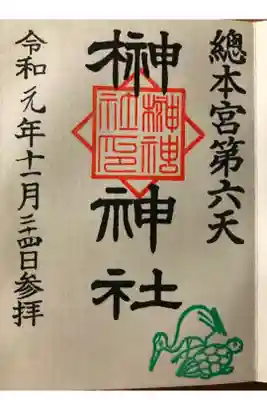 總本宮第六天
榊神社
榊神
社印
令和元年十一月二十四日参拜